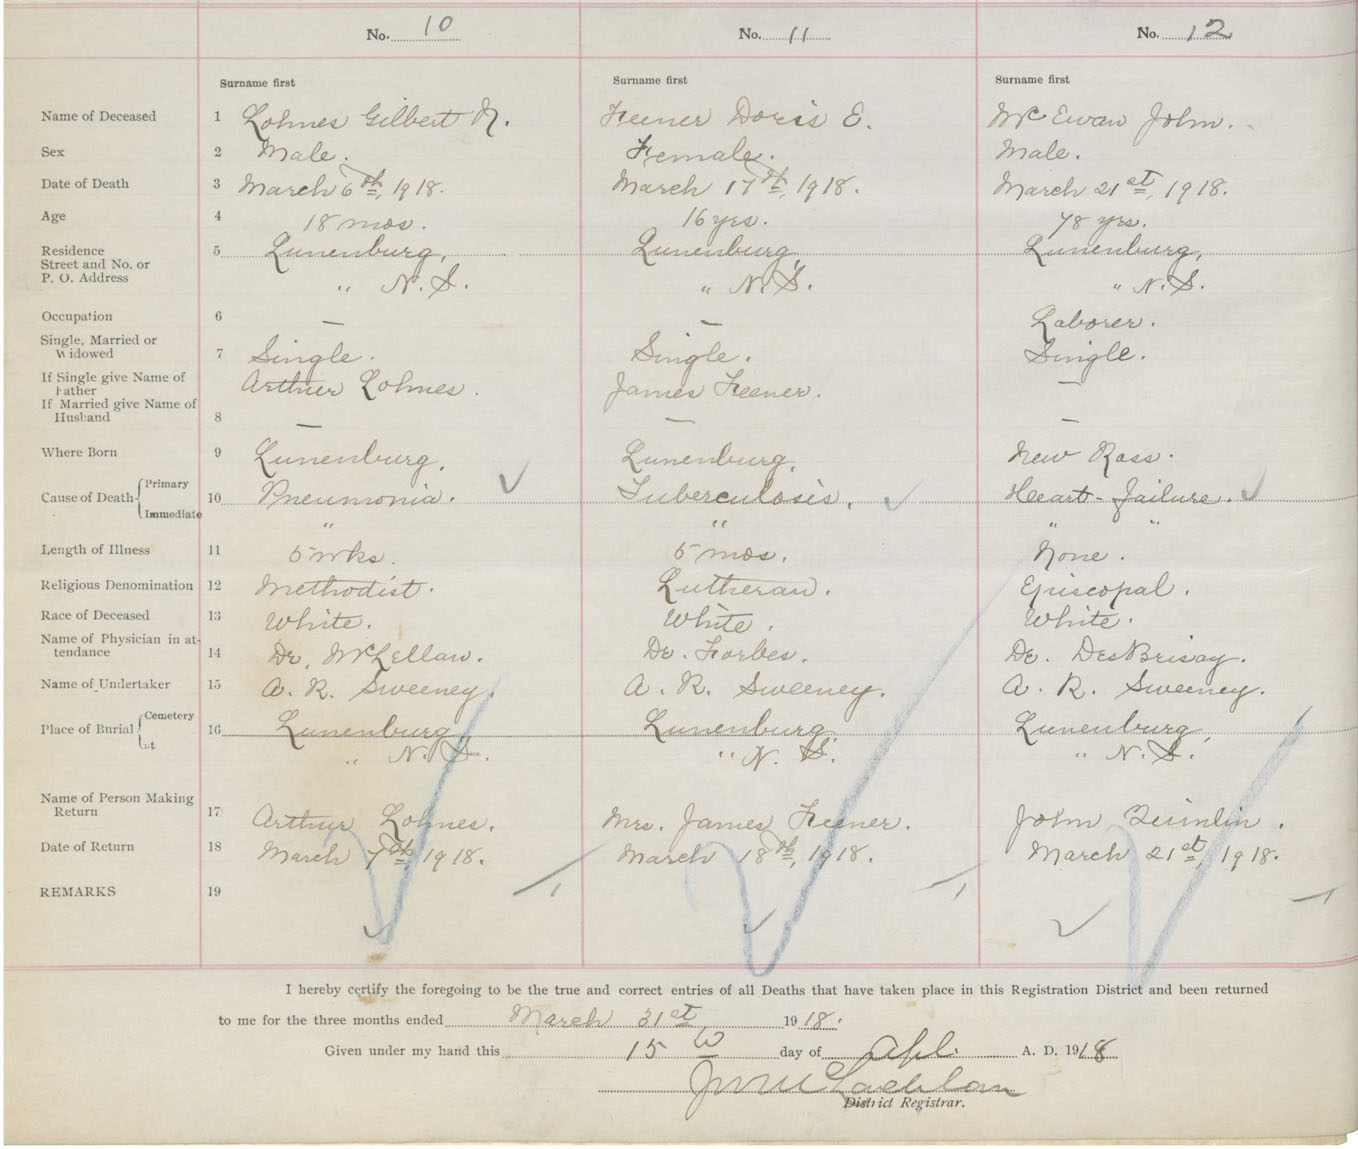 No. 10 No. 11 No. 12
Surname first Surname first Surname first
Name of Deceased 1 Lohnes Gilbert N. Feener Doris E. McEwan John.
Sex 2 Male. Female. Male.
Date of Death 3 March 6th, 1918. March 17th, 1918. March 21st, 1918.
Age 4 18 mos. 16 yrs. 78 yrs.
Residence 5 Lunenburg, Lunenburg, Lunenburg,
Street and No. or
P. O. Address " N.S. " N.S. " N.S.
Occupation 6 — — Laborer.
Single, Married or
Widowed 7 Single. Single. Single.
If Single give Name of
Father Arthur Lohnes. James Feener. —
If Married give Name of
Husband 8 — — —
Where Born 9 Lunenburg. Lunenburg. New Ross.
Primary
Cause of Death 10 Pneumonia. Tuberculosis. Heart-failure.
Immediate " " " "
Length of Illness 11 5 wks. 5 mos. None.
Religious Denomination 12 Methodist. Lutheran. Episcopal.
Race of Deceased 13 White. White. White.
Name of Physician in at-
tendance 14 Dr. McLellan. Dr. Forbes. Dr. DesBrisay.
Name of Undertaker 15 A. R. Sweeney. A. R. Sweeney. A. R. Sweeney.
Cemetery
Place of Burial 16 Lunenburg, Lunenburg, Lunenburg,
at " N.S. " N.S. " N.S.
Name of Person Making
Return 17 Arthur Lohnes. Mrs. James Feener. John
Date of Return 18 March 7th, 1918. March 18th, 1918. March 21st, 1918.
REMARKS 19
I hereby certify the foregoing to be the true and correct entries of all Deaths that have taken place in this Registration District and been returned
to me for the three months ended March 31st 1918.
Given under my hand this 15 day of Apl. A. D. 1918
McLachlan
District Registrar.